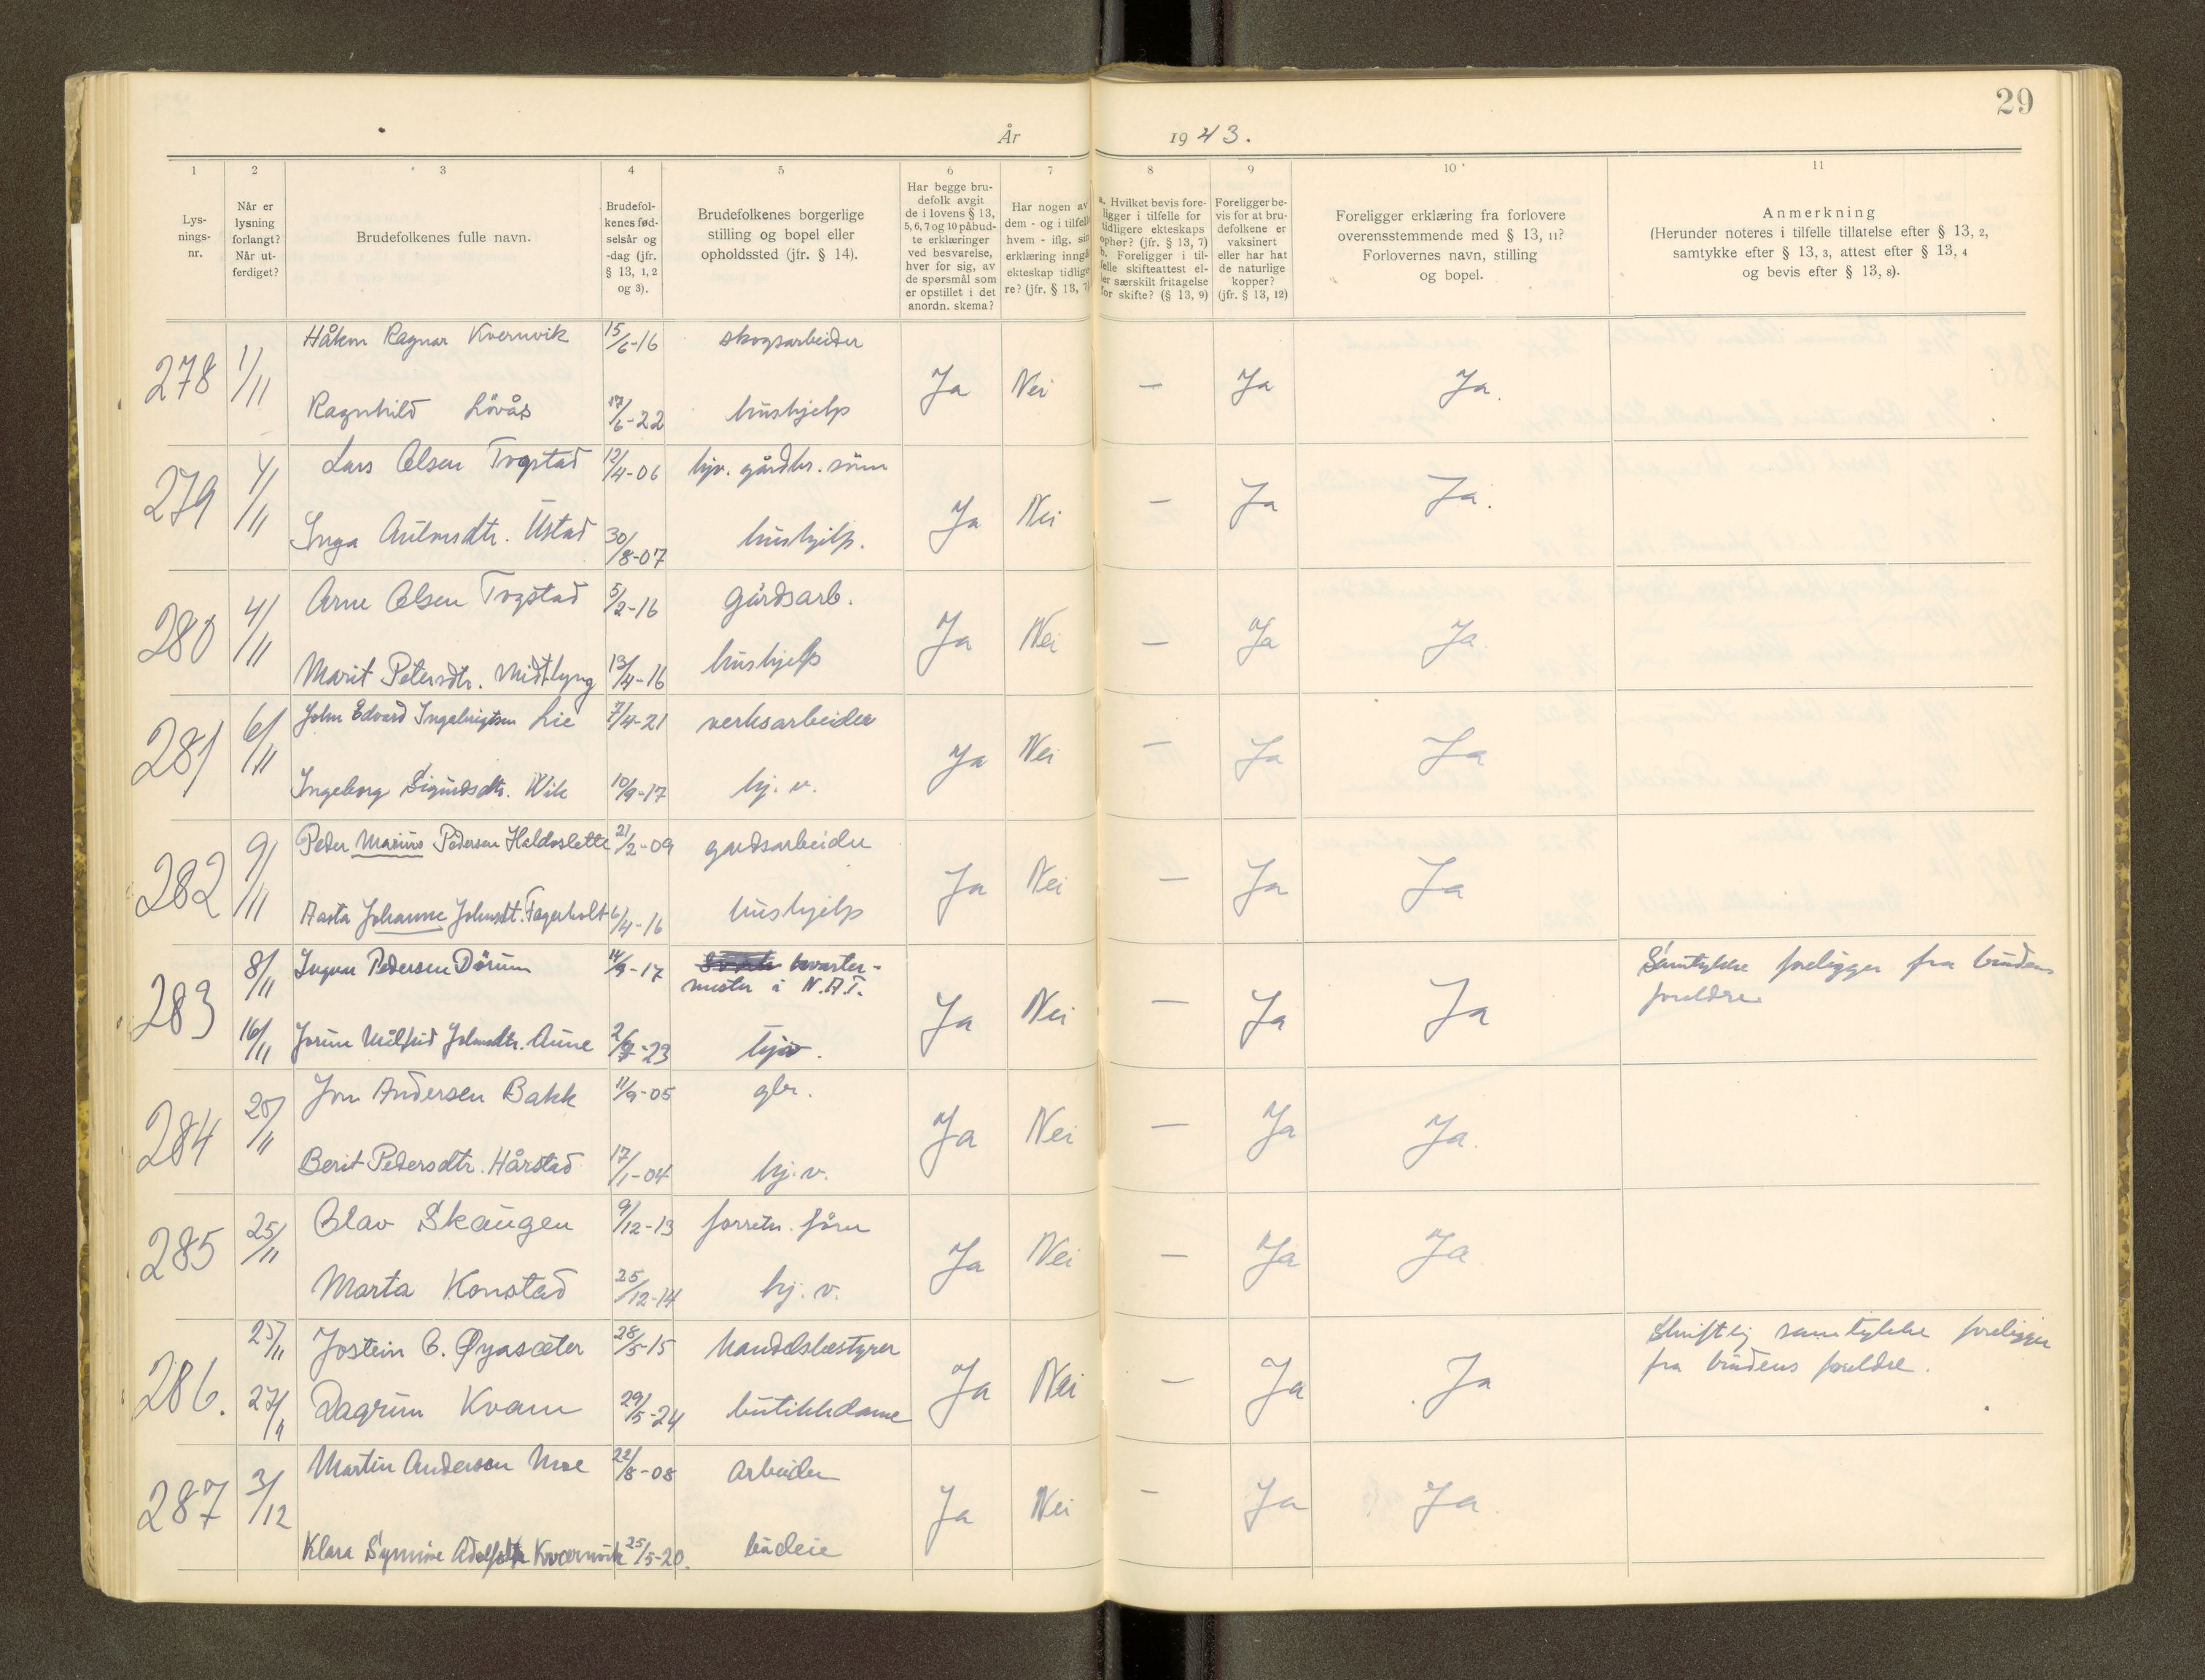 29
År 1943.
1 2 3 4 5 6 7 8 9 10 11
Lysningsnr.
Når er lysning forlangt? Når utferdiget?
Brudefolkenes fulle navn.
Brudefolkenes fødselsår og -dag (jfr. § 13, 1, 2 og 3).
Brudefolkenes borgerlige stilling og bopel eller opholdssted (jfr. § 14).
Har begge brudefolk avgit de i lovens § 13, 5, 6, 7 og 10 påbudte erklæringer ved besvarelse, hver for sig, av de spørsmål som er opstillet i det anordn. skema?
Har nogen av dem - og i tilfelle hvem - iflg. sin erklæring inngå ekteskap tidligere? (jfr. § 13, 7)
a. Hvilket bevis foreligger i tilfelle for tidligere ekteskaps ophør? (jfr. § 13, 7) b. Foreligger i tilfelle skifteattest eller særskilt fritagelse for skifte? (§ 13, 9)
Foreligger bevis for at brudefolkene er vaksinert eller har hat de naturlige kopper? (jfr. § 13, 12)
Foreligger erklæring fra forlovere overensstemmende med § 13, 11? Forlovernes navn, stilling og bopel.
Anmerkning (Herunder noteres i tilfelle tillatelse efter § 13, 2, samtykke efter § 13, 3, attest efter § 13, 4 og bevis efter § 13, 8).
278 1/11 Håkon Ragnar Kvernvik 15/6-16 skogsarbeider Ja Nei — Ja Ja.
Ragnhild Lövås 17/6-22 hushjelp
279 4/11 Lars Olsen Trogstad 12/4-06 hjv. gårdbr. sönn Ja Nei — Ja Ja.
Inga Ustad 30/8-07 hushjelp.
280 4/11 Arne Olsen Trogstad 5/2-16 gårdsarb. Ja Nei — Ja Ja.
Marit Petersdtr. Midtlyng 13/4-16 hushjelp
281 6/11 John Edvard Ingebrigtsen Lie 7/4-21 verksarbeider Ja Nei — Ja Ja
Ingeborg Sigurdsdtr. Wik 10/9-17 hj. v.
282 9/11 Peder Marius Pedersen Haldoslette 21/2-09 gardsarbeider Ja Nei — Ja Ja
Aasta Johanne Johnsdt. Fagerholt 6/4-16 hushjelp
283 8/11 Ingvar Pedersen Dörum 14/9-17 kvarter-
mester i N.A.T. Ja Nei — Ja Ja Samtykke foreligger fra brudens
foreldre
16/11 Jorun Målfrid Johnsdtr. Aune -23 hjv.
284 20/11 Jon Andersen Bakk 11/9-05 gbr. Ja Nei — Ja Ja.
Berit Pedersdtr. Hårstad 17/1-04 hj. v.
285 25/11 Olav Skaugen 9/12-13 forretn. förer Ja Nei — Ja Ja
Marta Konstad 25/12-14 hj. v.
286. 25/11 Jostein O. Øyasæter 28/5-15 handelsbestyrer Ja Nei — Ja Ja Skriftlig samtykke foreligger
fra brudens foreldre.
27/11 Dagrun Kvam 29/5-24 butikkdame
287 3/12 Martin Andersen Moe 22/8-08 Arbeider Ja Nei — Ja Ja.
Klara Synnöve Adolfsdtr Kvernvik 25/5-20. budeie